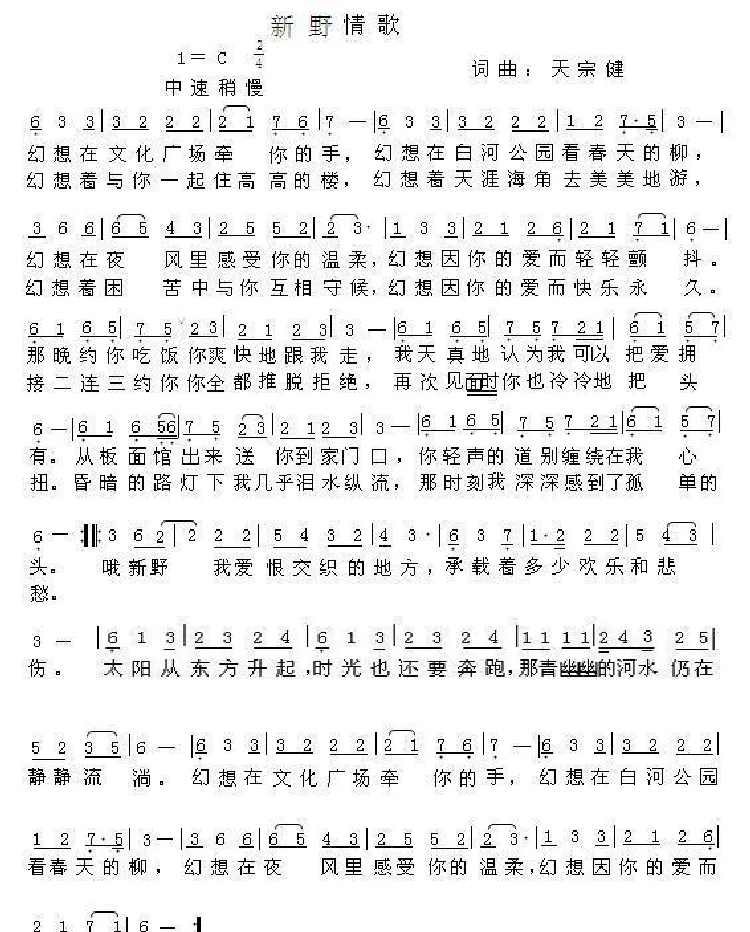 新野情歌
1= C 2/4
词曲：天宗健
中速稍慢
6 3 3 | 3 2 2 2 | 2 1 7 6 | 7 — | 6 3 3 | 3 2 2 2 | 1 2 7·5 | 3 — |
幻想在文化广场牵 你的手，幻想在白河公园看春天的柳，
幻想着与你一起住高高的楼，幻想着天涯海角去美美地游，
3 6 6 | 6 5 4 3 | 2 5 5 2 | 2 3· | 1 3 3 | 2 1 2 6 | 2 1 7 1 | 6 — |
幻想在夜 风里感受你的温柔，幻想因你的爱而轻轻颤 抖。
幻想着困 苦中与你互相守候，幻想因你的爱而快乐永 久。
6 1 6 5 | 7 5 2 3 | 2 1 2 3 | 3 — | 6 1 6 5 | 7 5 7 2 1 | 6 1 5 7 |
那晚约你吃饭你爽快地跟我走，我天真地认为我可以把爱拥
接二连三约你你全都推脱拒绝，再次见面时你也冷冷地把 头
6 — | 6 1 6 5 6 | 7 5 2 3 | 2 1 2 3 | 3 — | 6 1 6 5 | 7 5 2 2 | 6 1 5 7 |
有。从板面馆出来送 你到家门口，你轻声的道别缠绕在我 心
扭。昏暗的路灯下我几乎泪水纵流，那时刻我深深感到了孤 单的
6 — :‖: 3 6 2 | 2 2 2 | 5 4 3 2 | 4 3· | 6 3 7 | 1·2 2 2 | 5 4 3 |
头。 哦新野 我爱恨交织的地方，承载着多少欢乐和悲
愁。
3 — | 6 1 3 | 2 3 2 4 | 6 1 3 | 2 3 2 4 | 1 1 1 1 | 2 4 3 2 5 |
伤。 太阳从东方升起，时光也还要奔跑，那青幽幽的河水仍在
5 2 3 5 | 6 — | 6 3 3 | 3 2 2 2 | 2 1 7 6 | 7 — | 6 3 3 | 3 2 2 2 |
静静流 淌。幻想在文化广场牵 你的手，幻想在白河公园
1 2 7·5 | 3 — | 3 6 6 | 6 5 4 3 | 2 5 5 2 | 2 3· | 1 3 3 | 2 1 2 6 |
看春天的柳，幻想在夜 风里感受你的温柔，幻想因你的爱而
2 1 7 1 | 6 — :|